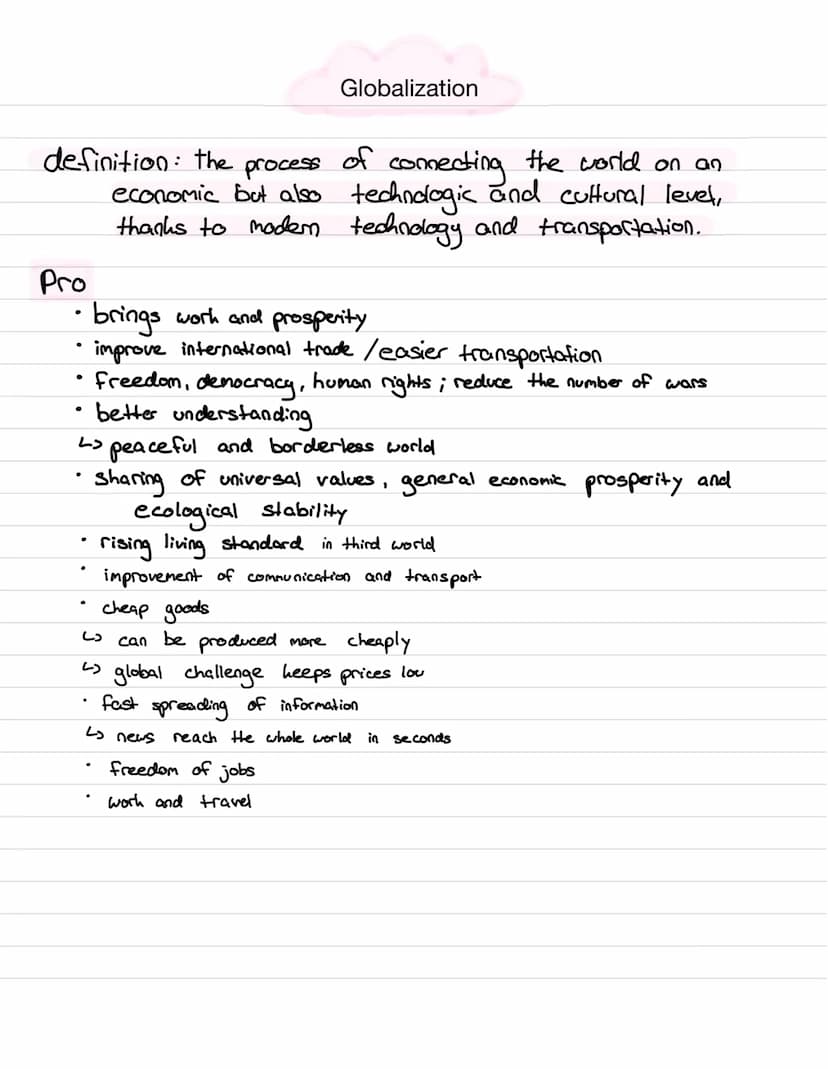 Globalization
definition: the process of connecting the world on an
economic but also technologic and cultural level,
thanks to modern technology and transportation.
Pro
• brings work and prosperity
• improve international trade / easier transportation
• freedom, democracy, human rights ; reduce the number of wars
• better understanding
↳ peaceful and borderless world
• sharing of universal values, general economic prosperity and
ecological stability
• rising living standard in third world
• improvement of communication and transport
• cheap goods
↳ can be produced more cheaply
↳ global challenge keeps prices low
• fast spreading of information
↳ news reach the whole world in seconds
• freedom of jobs
• work and travel